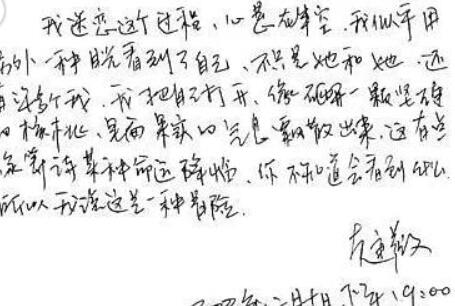 我迷恋这个过程,心悬在半空,我似乎用
另外一种眼看到了自己,不只是她和她,还
有许多个我,我把自己打开,像砸碎一颗坚硬
的核桃壳,里面果実的气息飘散出来,这有点
像等待某种命运降临,你不知道会看到什么
所以我说这是一种冒险.
年 月 日 下午 19:00